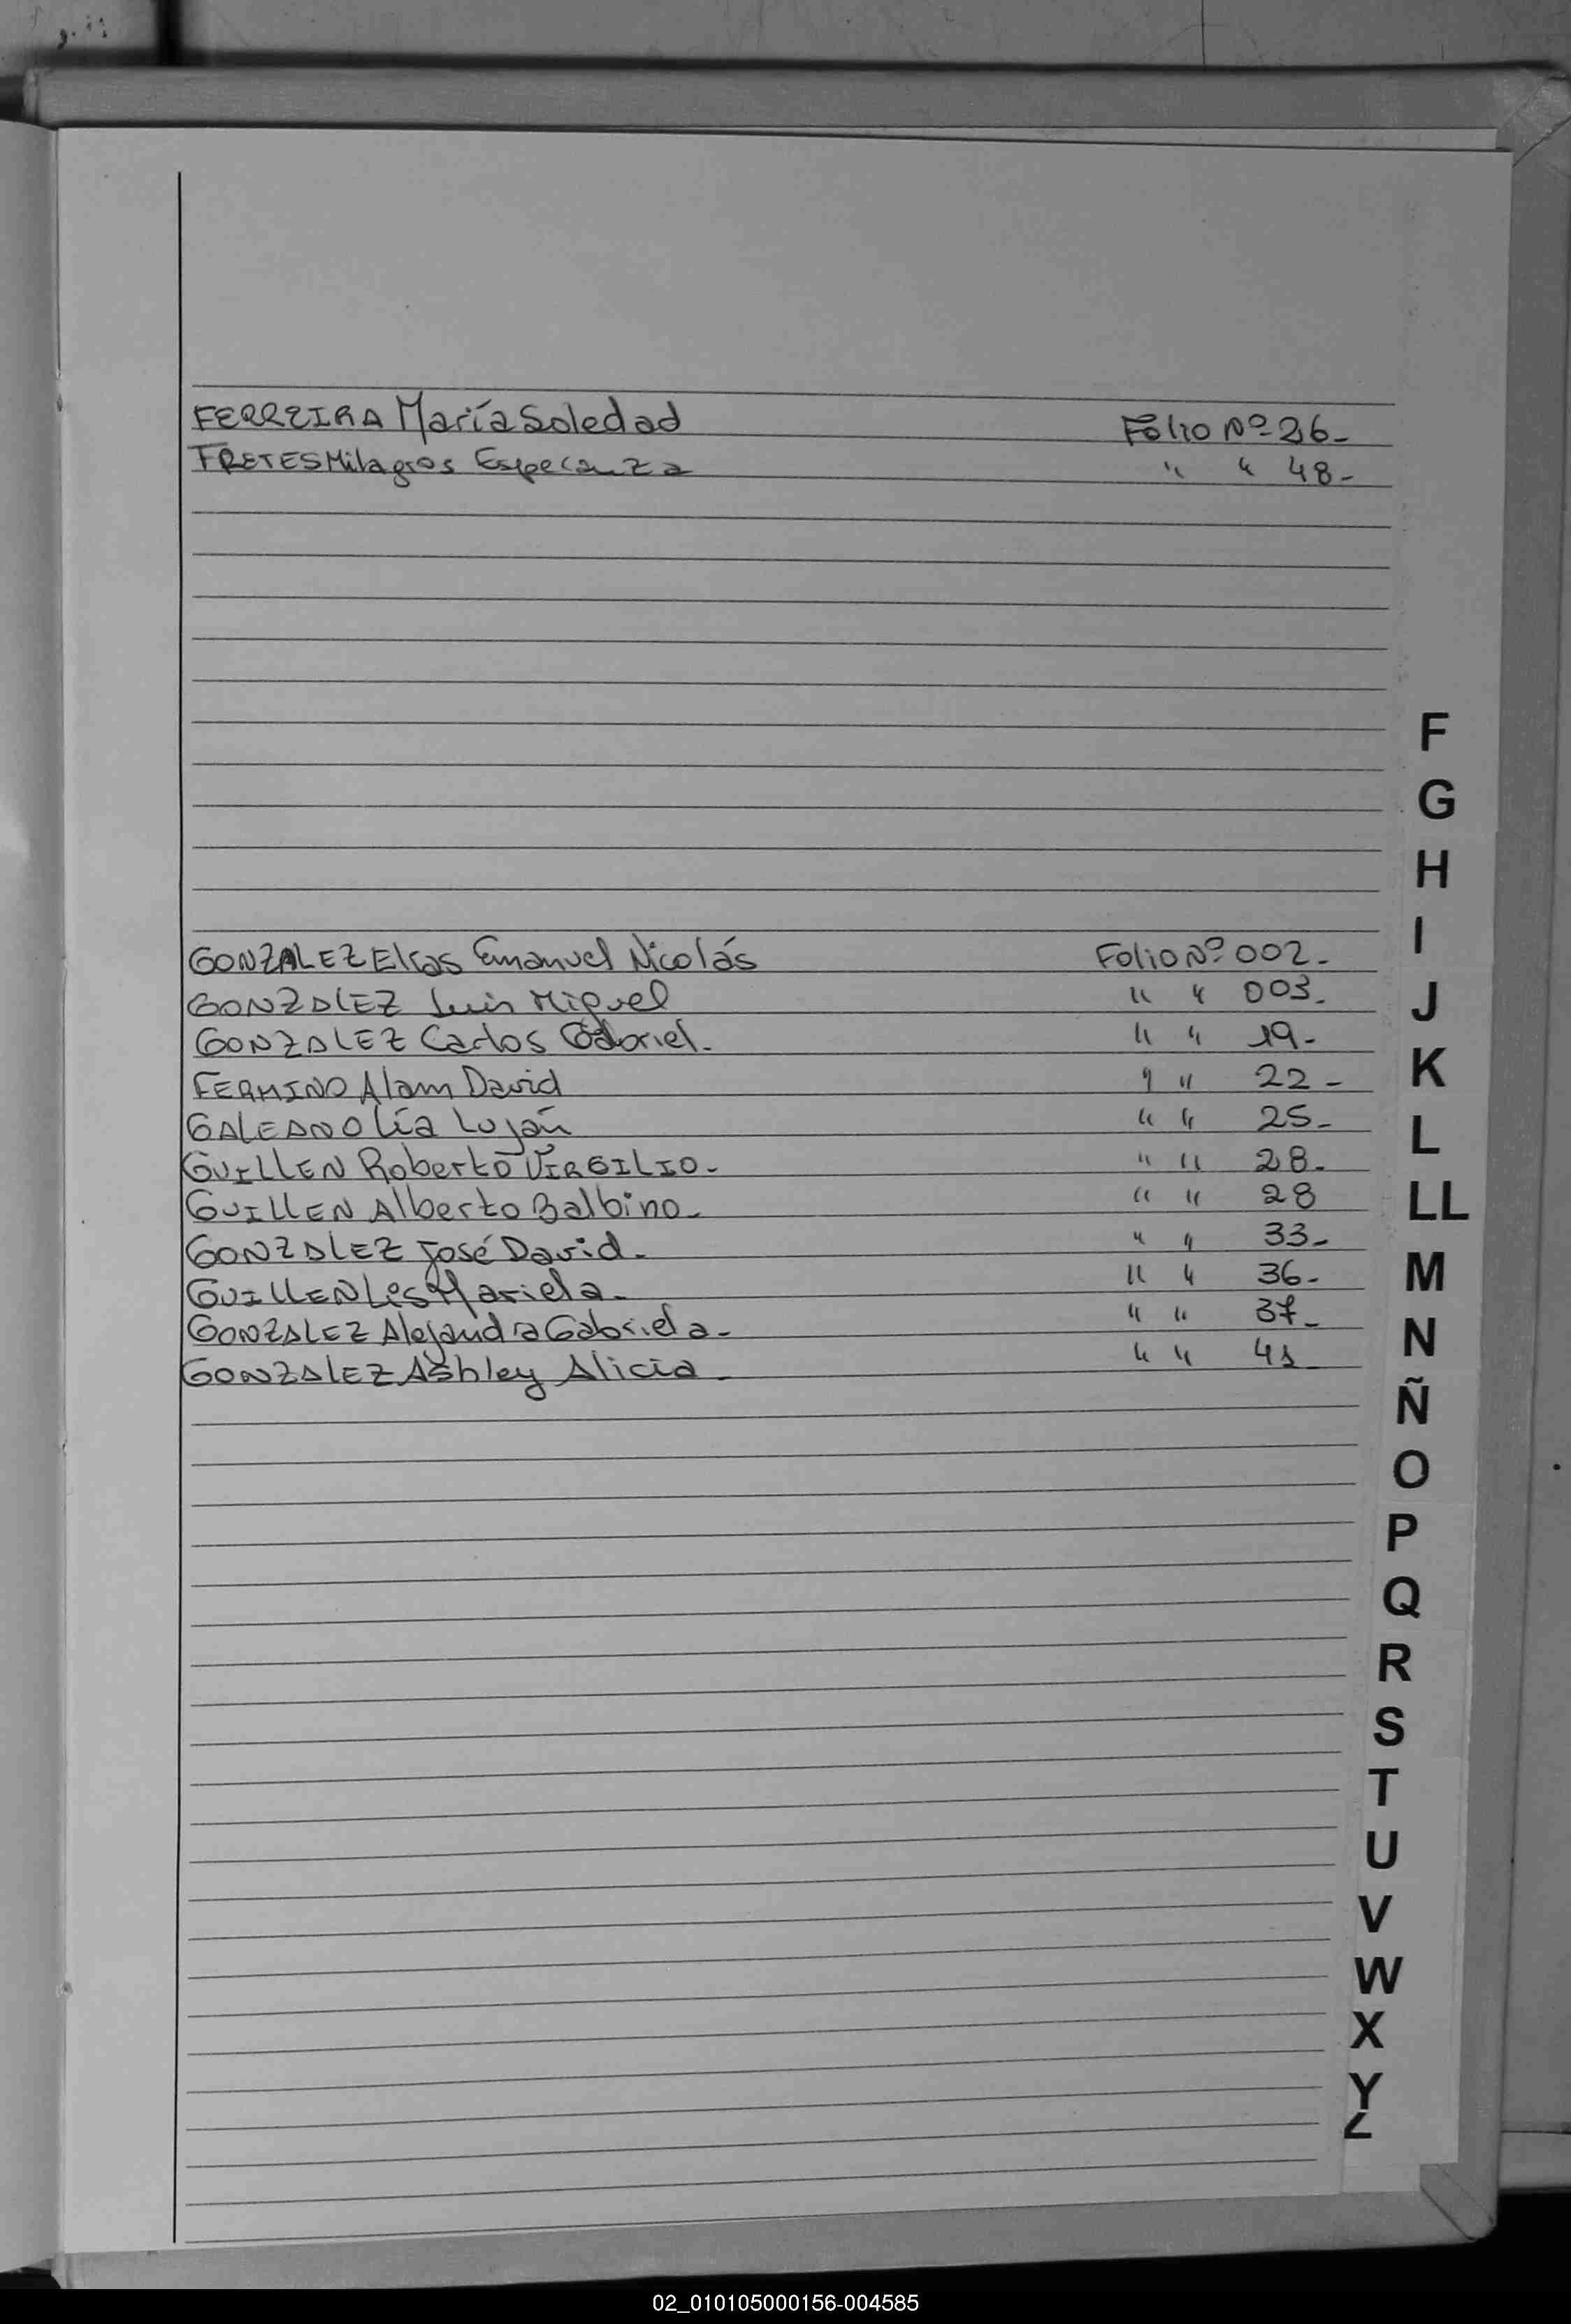 FERREIRA María Soledad Folio Nº 26-
FRETES Milagros Esperanza " " 48-
GONZALEZ Elías Emanuel Nicolás Folio Nº 002-
GONZALEZ Luis Miguel " " 003-
GONZALEZ Carlos Gabriel- " " 19-
FERMINO Alam David " " 22-
GALEANO Lía Luján " " 25-
GUILLEN Roberto VIRGILIO- " " 28-
GUILLEN Alberto Balbino- " " 28
GONZALEZ José David- " " 33-
GUILLEN Mariela- " " 36-
GONZALEZ Alejandra Gabriela- " " 37-
GONZALEZ Ashley Alicia- " " 41-
F
G
H
I
J
K
L
LL
M
N
Ñ
O
P
Q
R
S
T
U
V
W
X
Y
Z
02_010105000156-004585